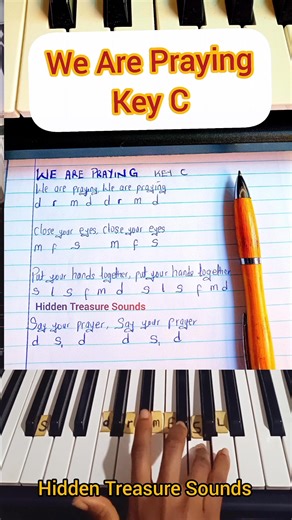 We Are Praying
Key C
WE ARE PRAYING KEY C
We are praying, We are praying
d r m d d r m d
Close your eyes, close your eyes
m f s m f s
Put your hands together, put your hands together
s l s f m d s l s f m d
Hidden Treasure Sounds
Say your prayer, Say your prayer
d s, d d s, d
S d r m f s l
Hidden Treasure Sounds